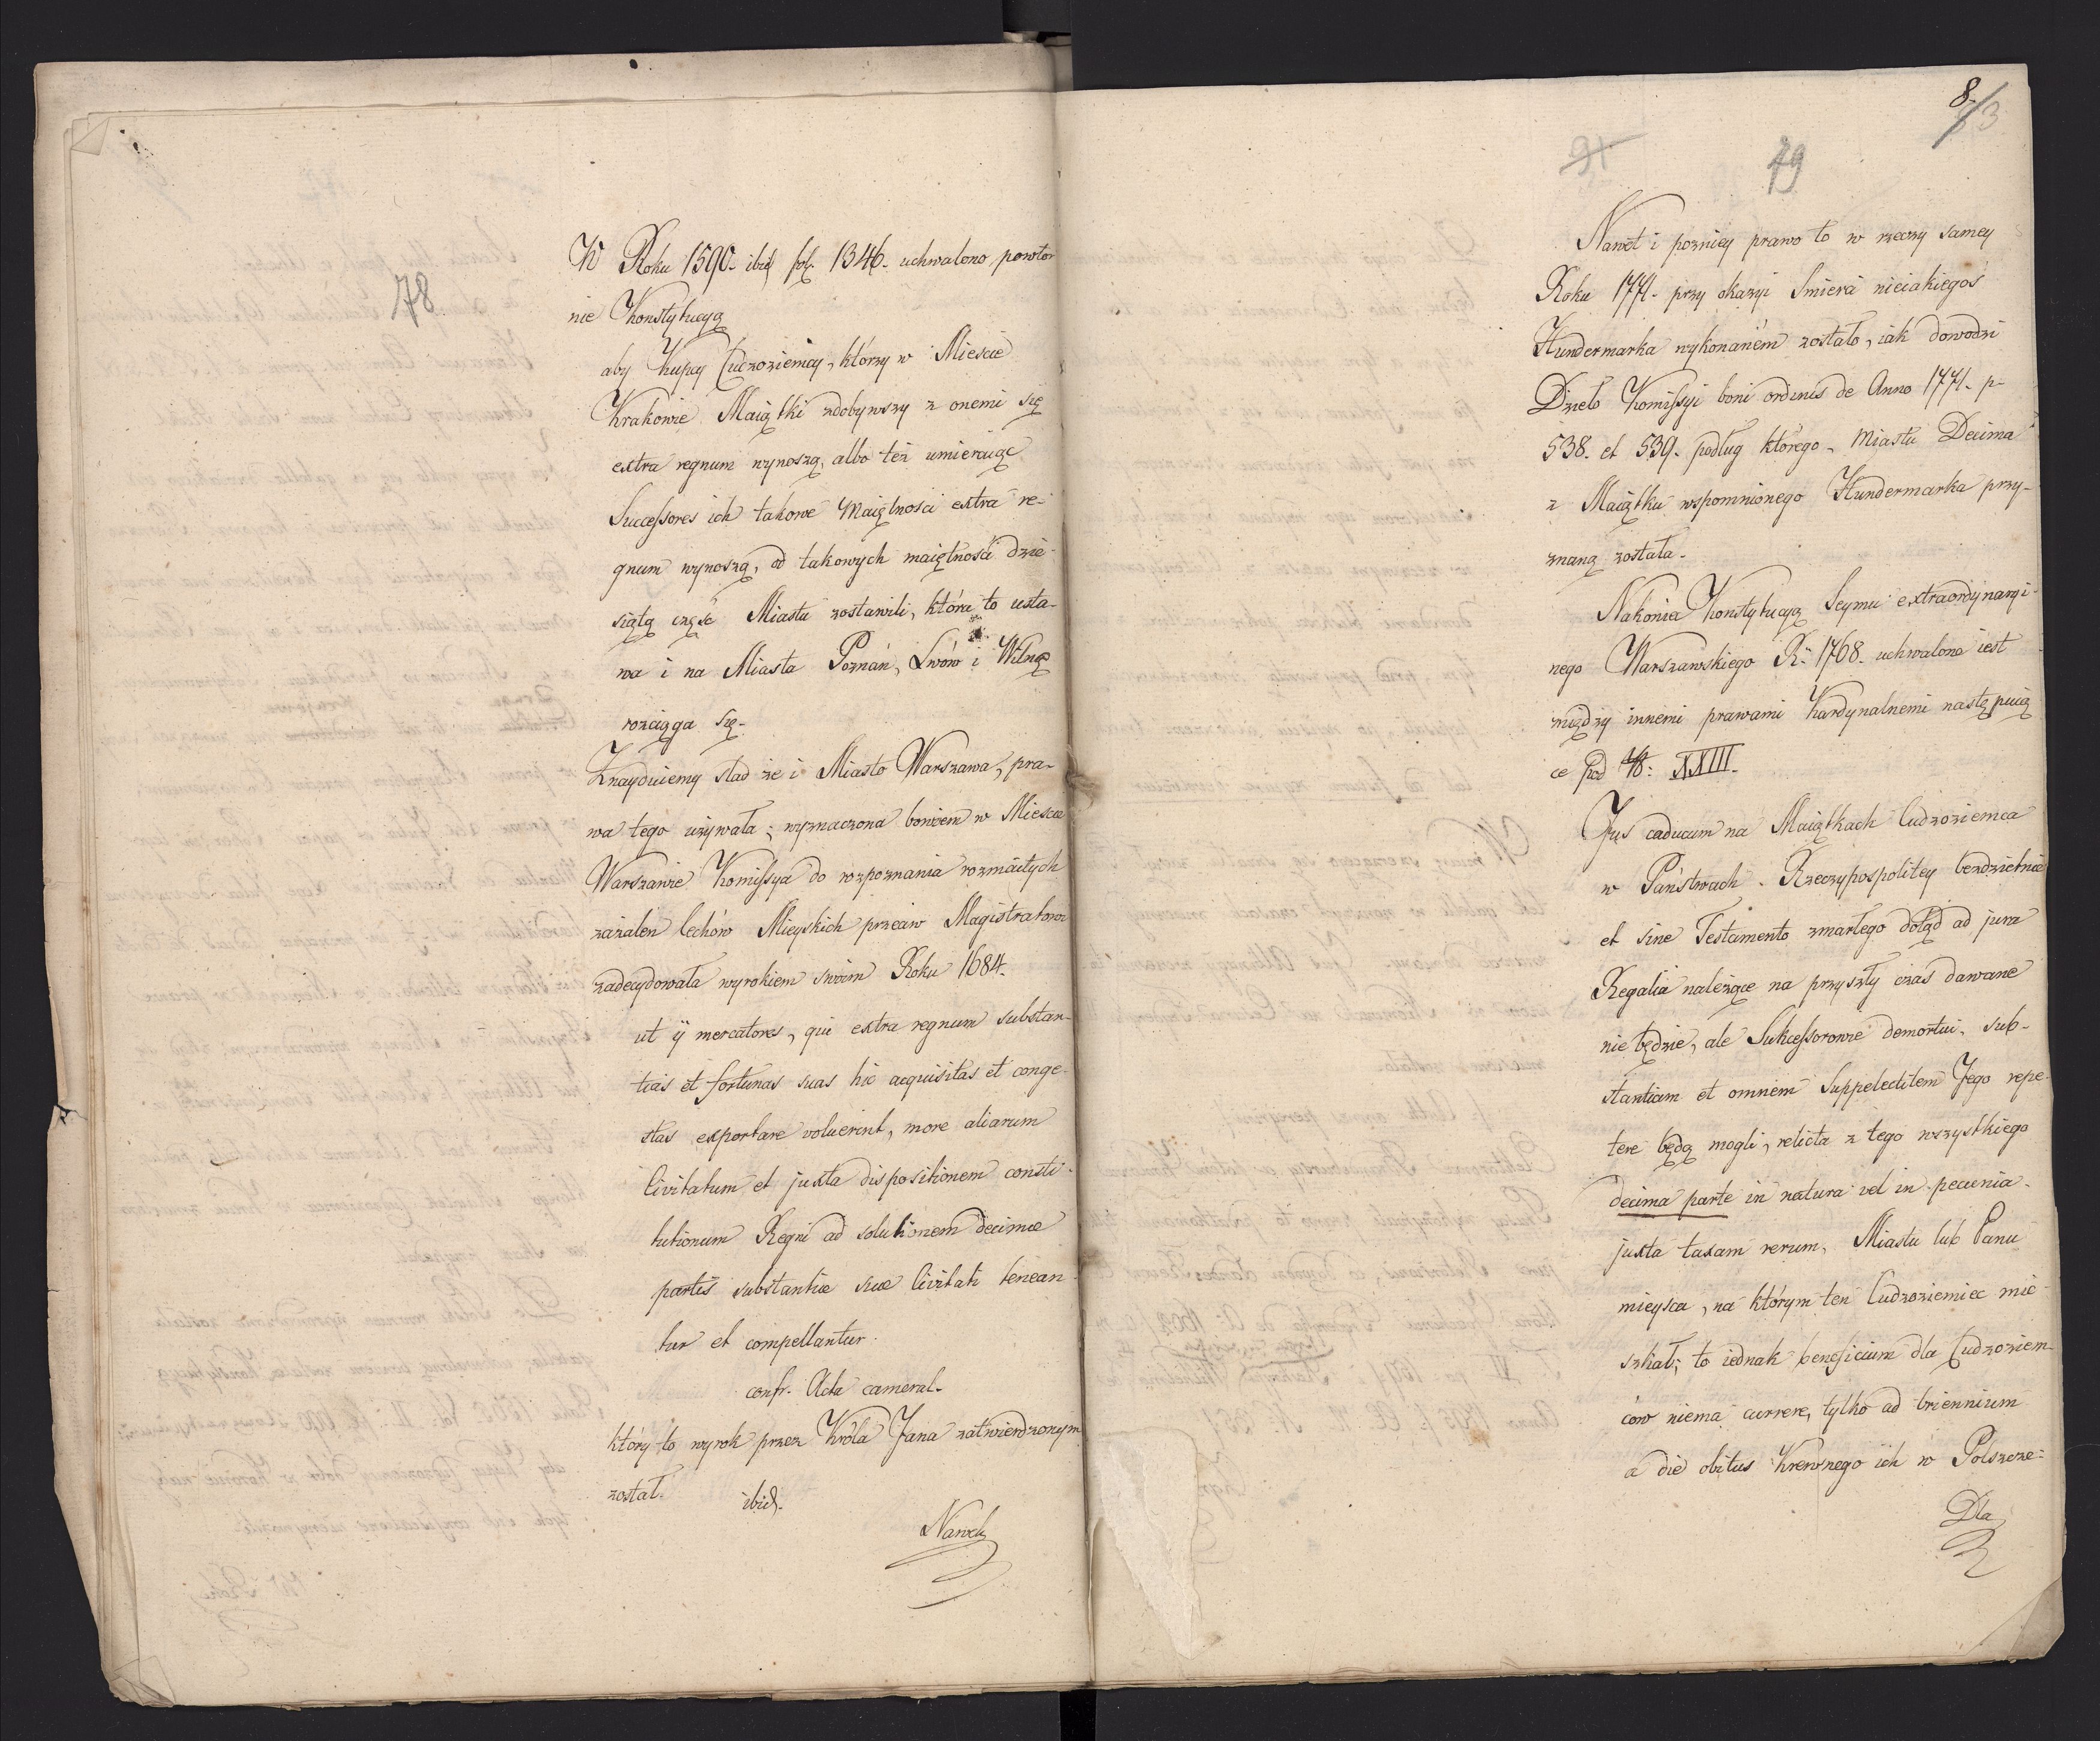 78
W Roku 1590. ibid fol. 1346. uchwalono powtor
nie Konstytucyą
aby Kupcy Cudzoziemcy, którzy w Miescie
Krakowie Maiątki zdobywszy z onemi się
extra regnum wynoszą, albo też umieraiąc
Successores ich takowe Maiętnosci extra re-
gnum wynoszą, od takowych maiętnosci dzie-
siątą częsć Miastu zostawili, która to usta-
wa i na Miasta Poznań, Lwów i Wilno
rozciąga się.
Znayduiemy slad że i Miasto Warszawa, pra-
wa tego używała; wyznaczona bowiem w Miescie
Warszawie Komissya do rozpoznania rozmaitych
zażalen Cechów Mieyskich przeciw Magistratowi
zadecydowała wyrokiem swoim Roku 1684.
ut ij mercatores, qui extra regnum substan-
tias et fortunas suas hic acquisitas et conge-
stas exportare voluerint, more aliarum
Civitatum et juxta dispositionem consti-
tutionum Regni ad solutionem decimæ
partis substantiæ suæ Civitati tenean-
tur et compellantur.
confr. Acta cameral.
który to wyrok przez Króla Jana zatwierdzonym
został. ibid.
Nawet
8.
83
91
79
Nawet i pozniey prawo to w rzeczy samey
Roku 1771. przy okazyi Smierci nieiakiegoś
Hundermarka wykonaném zostało, iak dowodzi
Dzieło Komissyi boni ordinis de Anno 1771. p-
538. et 539. podług którego Miastu Decima
z Maiątku wspomnionego Hundermarka przy-
znaną została.
Nakoniec Konstytucyą Seymu extraordynaryi-
nego Warszawskiego R. 1768. uchwalono iest
między innemi prawami Kardynalnemi następuią
ce pod No: XXIII.
Jus caducum na Maiątkach Cudzoziemca
w Państwach Rzeczypospolitey bezdzietnie
et sine Testamento zmarłego dotąd ad jura
Regalia należące na przyszły czas dawane
nie będzie, ale Sukcessorowie demortui, sub-
stantiam et omnem Suppelectilem Jego repe-
tere będą mogli, relicta z tego wszystkiego
decima parte in natura vel in pecunia
juxta taxam rerum, Miastu lub Panu
mieysca, na którym ten Cudzoziemiec mie-
szkał; to iednak beneficium dla Cudzoziem-
ców niema currere, tylko ad triennium
a die obitus Krewnego ich w Polszcze-
Dla